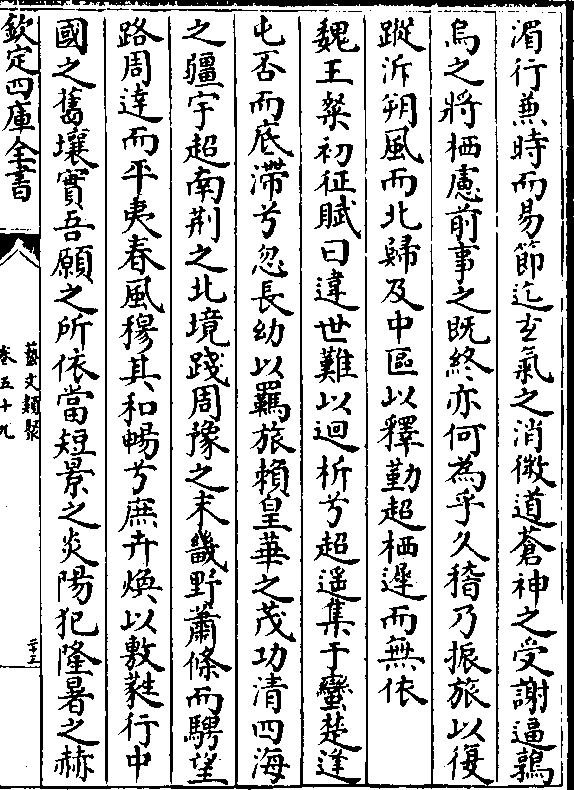 湄行兼時而易節迄玄氣之消微道蒼神之受謝逼鶉
烏之將栖慮前事之既終亦何為乎久稽乃振旅以復
蹤泝朔風而北歸及中區以釋勤超栖遲而無依
魏王粲初征賦曰違世難以迴析兮超遥集于蠻楚逢
屯否而底滯兮忽長幼以羈旅賴皇華之茂功清四海
之疆宇超南荆之北境踐周豫之末畿野蕭條而騁望
路周達而平夷春風穆其和暢兮庶卉煥以敷蕤行中
國之舊壤實吾願之所依當短景之炎陽犯隆暑之赫
欽定四庫全書
藝文類聚
卷五十九
二十三